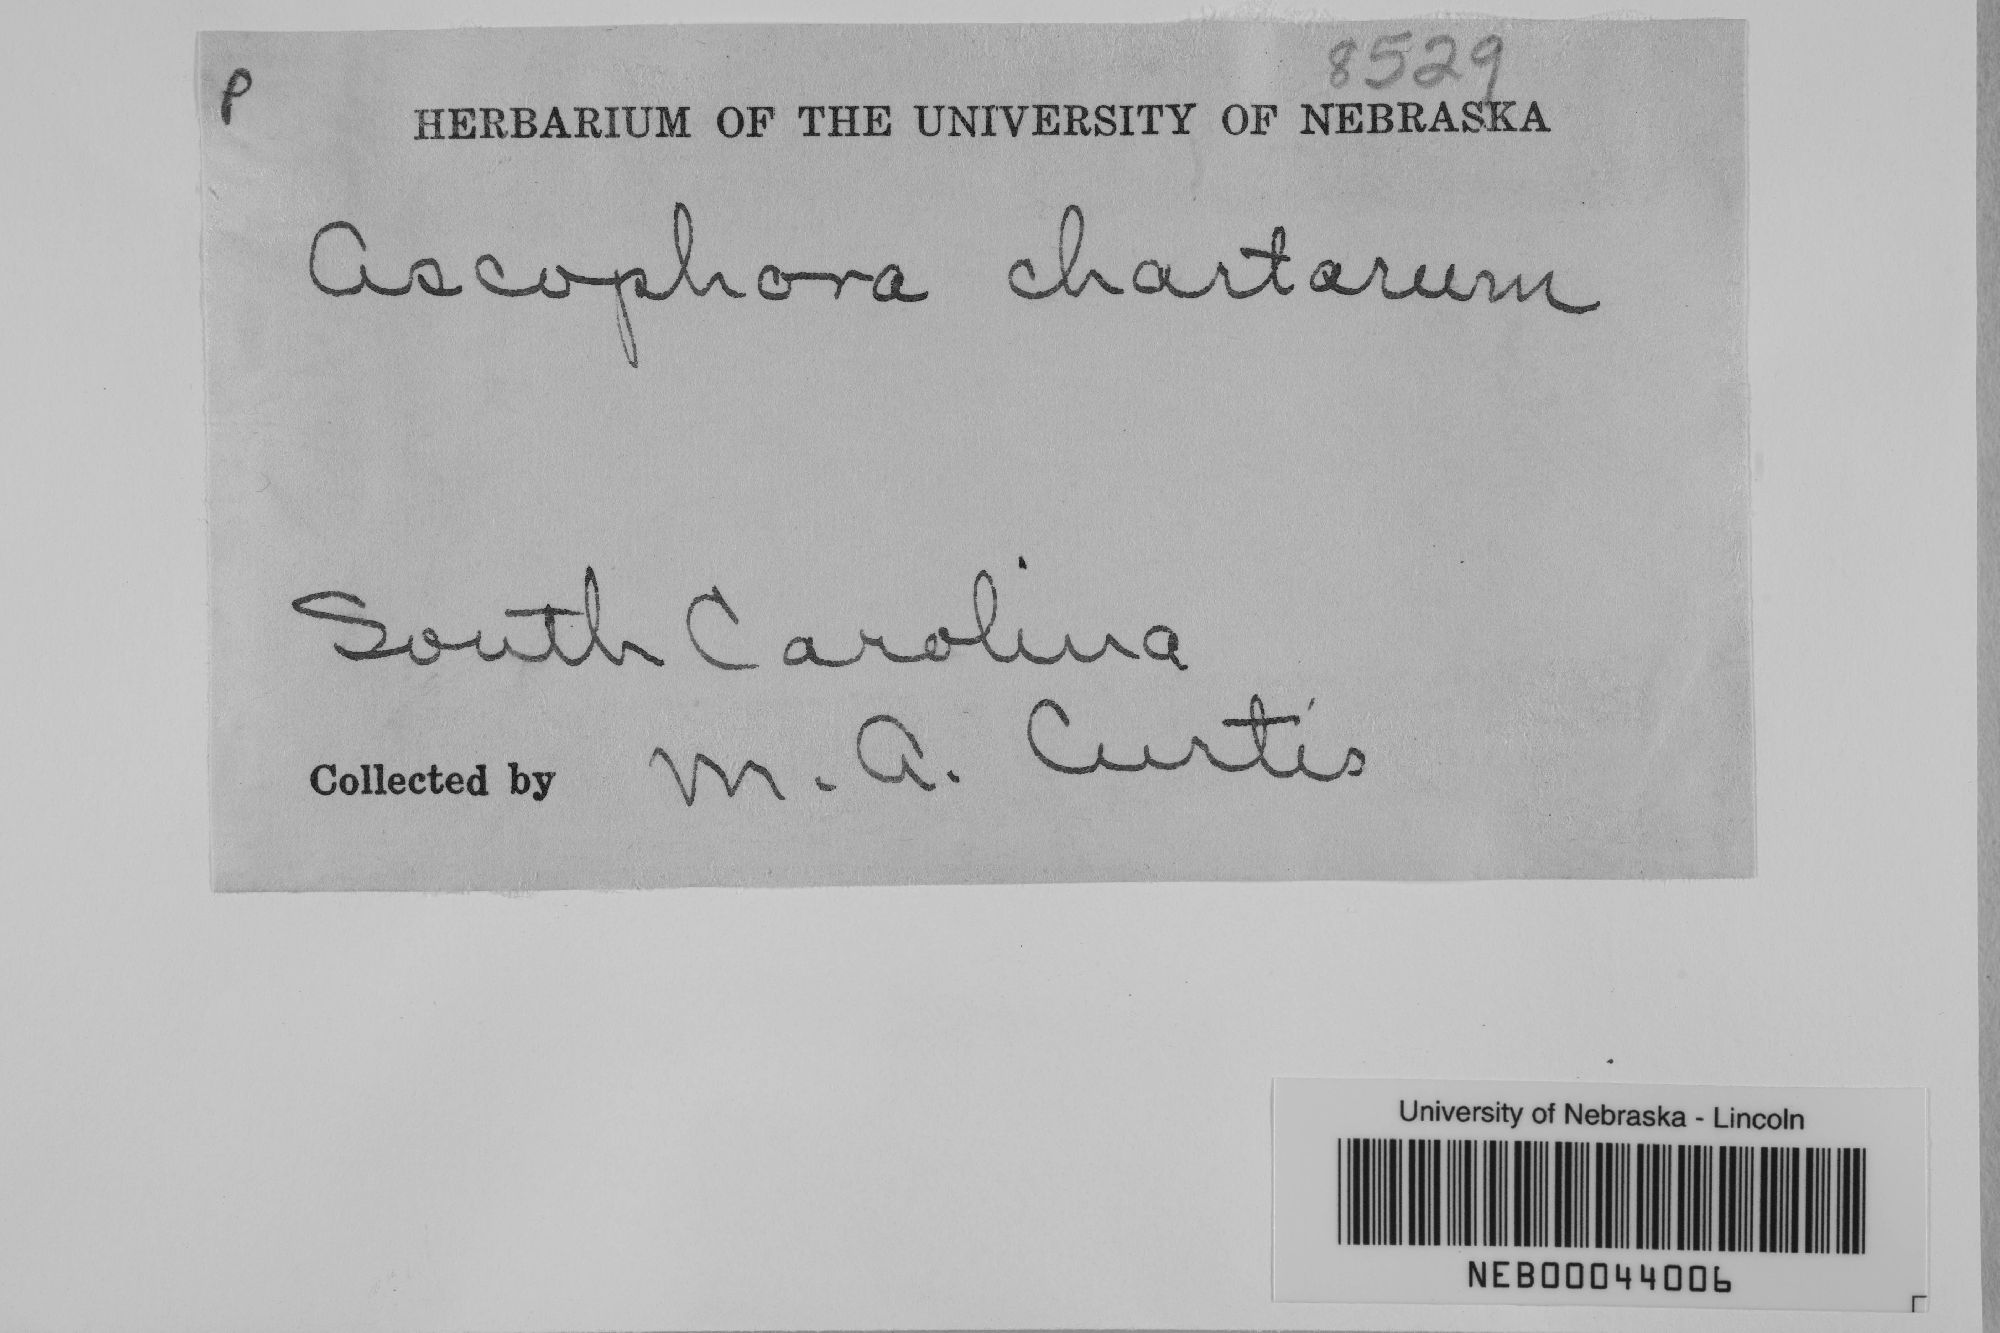 P
8529
HERBARIUM OF THE UNIVERSITY OF NEBRASKA
Ascophora chartarum
South Carolina
Collected by M. A. Curtis
University of Nebraska - Lincoln
NEB00044006